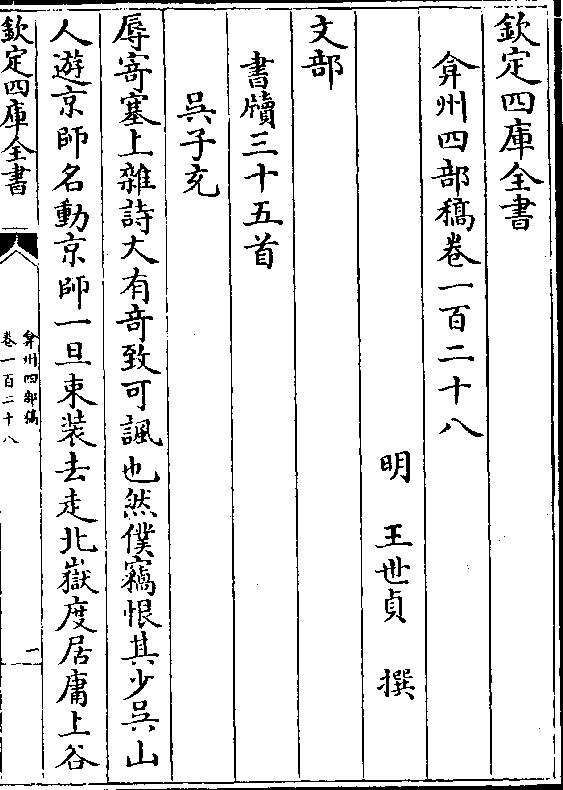 欽定四庫全書
弇州四部稿卷一百二十八
明　王世貞　撰
文部
書牘三十五首
吳子充
辱寄塞上雜詩大有竒致可諷也然僕竊恨其少吳山
人遊京師名動京師一旦束裝去走北嶽度居庸上谷
欽定四庫全書
弇州四部稿
卷一百二十八
一